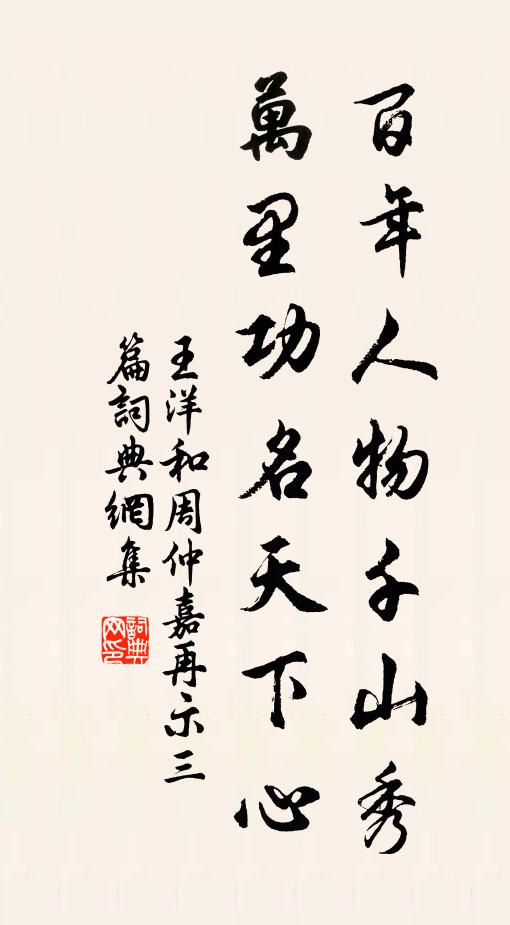 百年人物千山秀
萬里功名天下心
王洋和周仲嘉再示三
篇詞典網集
詞典網印